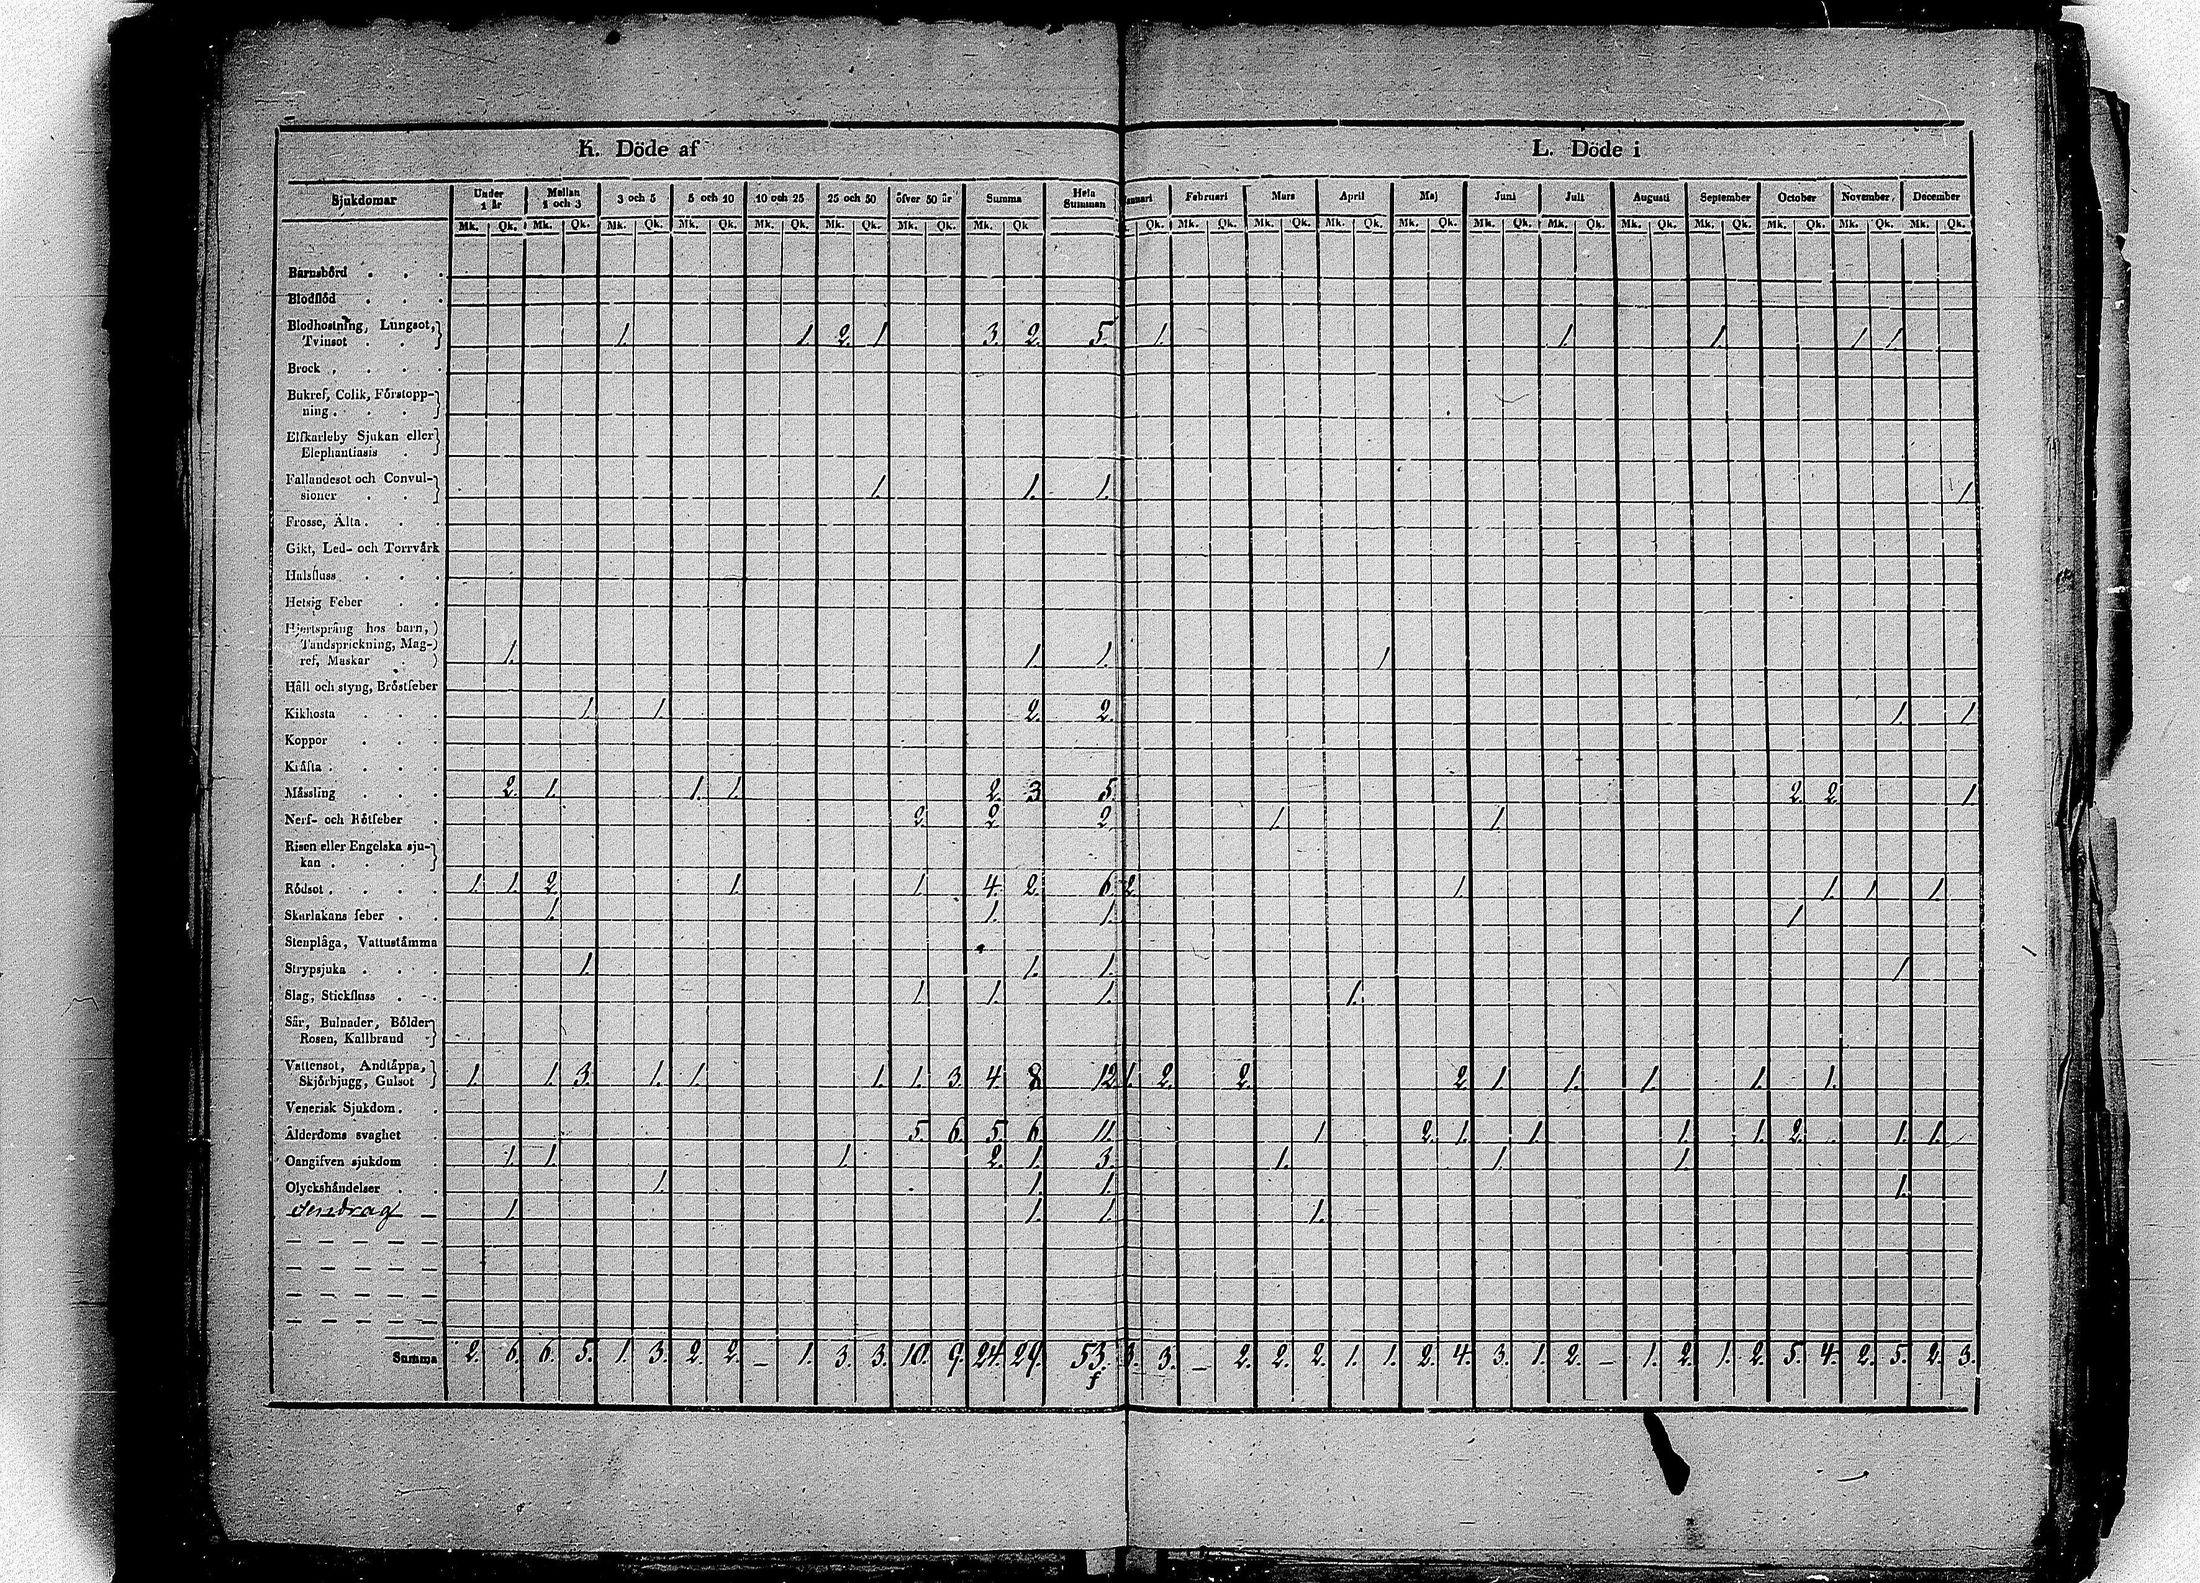 K. Döde af
L. Döde i
Sjukdomar Under 1 år Mellan 1 och 3 3 och 5 5 och 10 10 och 25 25 och 50 öfver 50 år Summa Hela Summan Februari Mars April Maj Juni Juli Augusti September October November December
Mk. Qk. Mk. Qk. Mk. Qk. Mk. Qk. Mk. Qk. Mk. Qk. Mk. Qk. Mk. Qk Qk. Mk. Qk. Mk. Qk. Mk. Qk. Mk. Qk. Mk. Qk. Mk. Qk. Mk. Qk. Mk. Qk. Mk. Qk. Mk. Qk. Mk. Qk.
Barnsbörd . . .
Blodflöd . . .
Blodhostning, Lungsot,
Tvinsot . . . 1. 1. 2. 1. 3. 2. 5. 1. 1. 1. 1. 1.
Brock . . . .
Bukref, Colik, Förstopp-
ning . . .
Elfkarleby Sjukan eller
Elephantiasis .
Fallandesot och Convul-
sioner . . 1. 1. 1. 1.
Frosse, Älta . . .
Gikt, Led- och Torrvärk
Halsfluss . . .
Hetsig Feber . .
Hjertsprång hos barn,
Tandsprickning, Mag-
ref, Maskar . 1. 1. 1. 1.
Håll och styng, Bröstfeber
Kikhosta . . . 1. 1. 2. 2. 1. 1.
Koppor . . .
Kräfta . . . .
Mässling . . . 2. 1. 1. 1. 2. 3 5. 2. 2. 1.
Nerf- och Rötfeber . 2. 2. 2. 1. 1.
Risen eller Engelska sju-
kan . . . .
Rödsot . . . . 1. 1. 2. 1. 1. 4. 2. 6. 2. 1. 1. 1. 1.
Skarlakans feber . . 1. 1. 1. 1.
Stenplåga, Vattustämma
Strypsjuka . . . 1. 1. 1. 1.
Slag, Stickfluss . . 1. 1. 1. 1.
Sår, Bulnader, Bölder
Rosen, Kallbrand
Vattensot, Andtäppa,
Skjörbjugg, Gulsot 1. 1. 3. 1. 1. 1. 1. 3. 4. 8. 12. 1. 2. 2. 2. 1. 1. 1. 1. 1.
Venerisk Sjukdom . .
Ålderdoms svaghet . 5. 6. 5. 6. 11. 1. 2. 1. 1. 1. 1. 2. 1. 1.
Oangifven sjukdom . 1. 1. 1. 2. 1. 3. 1. 1. 1.
Olyckshändelser . . 1. 1. 1. 1.
Sendrag 1. 1. 1. 1.
Summa 2. 6. 6. 5. 1. 3. 2. 2. – 1. 3. 3. 10. 9. 24. 29. 53. 3. 3. – 2. 2. 2. 1. 1. 2. 4. 3. 1. 2. – 1. 2. 1. 2. 5. 4. 2. 5. 2. 3.